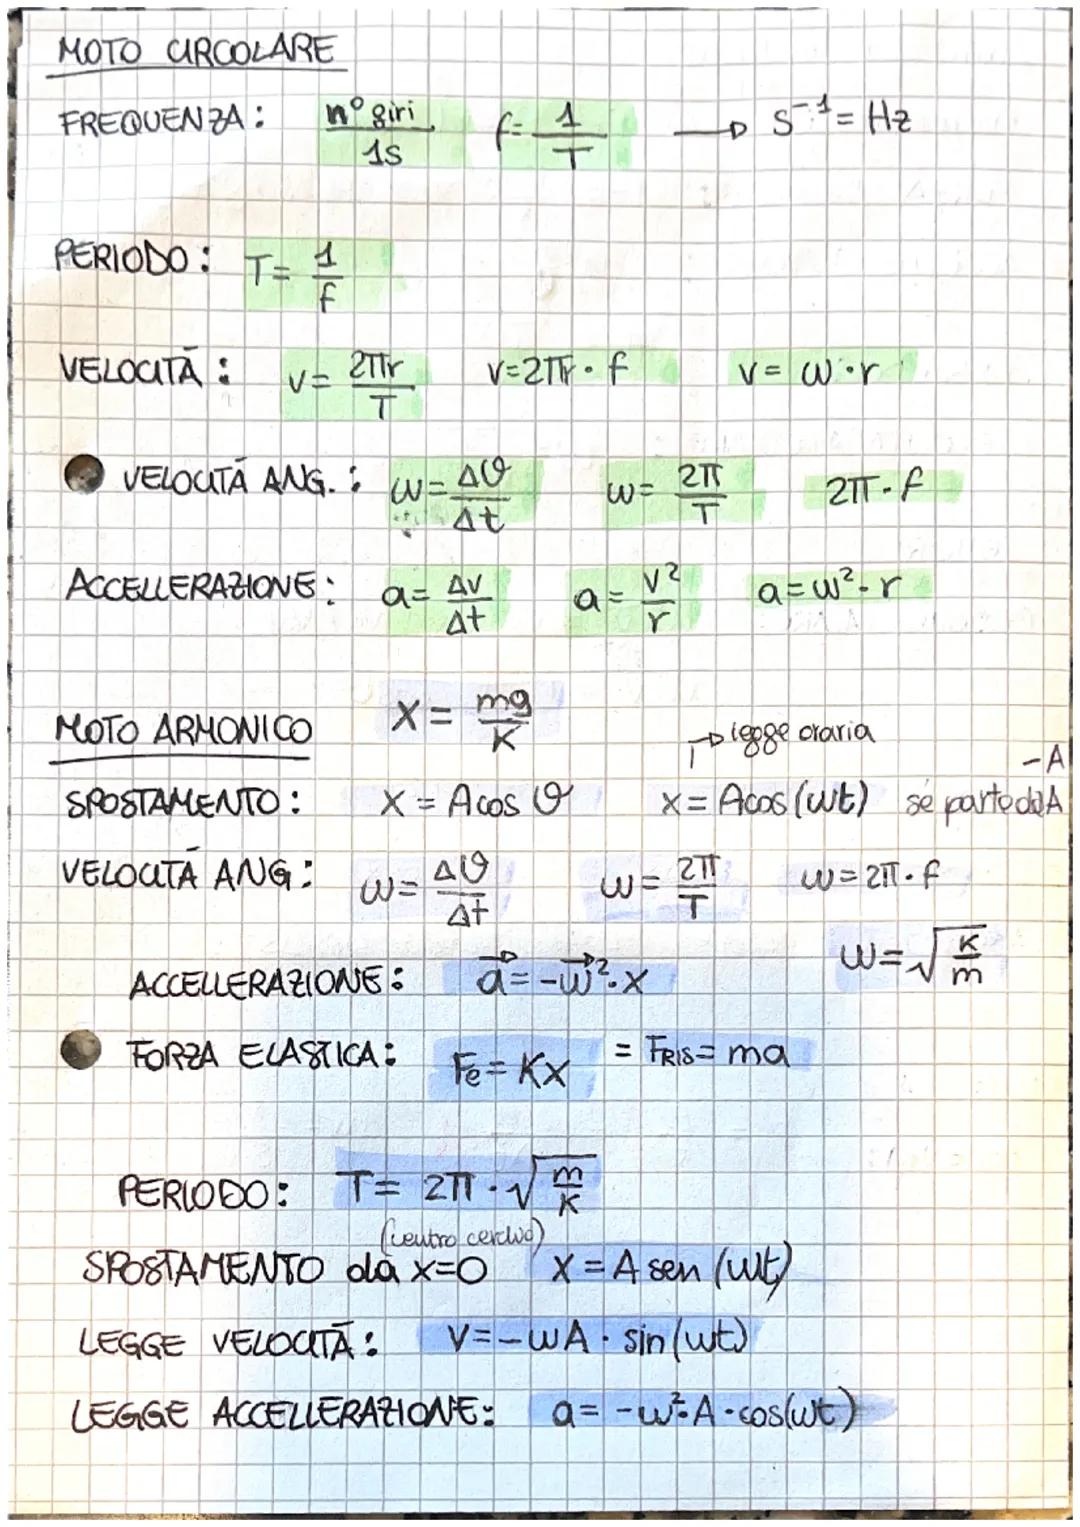 MOTO CIRCOLARE
FREQUENZA: n° giri / 1s f = 1/T → s⁻¹ = Hz
PERIODO: T = 1/f
VELOCITÀ: v = 2πr/T v = 2πr · f v = ω · r
VELOCITÀ ANG.: ω = Δθ/Δt ω = 2π/T 2π · f
ACCELLERAZIONE: a = Δv/Δt a = v²/r a = ω² · r
MOTO ARMONICO x = mg/K
→ legge oraria
SPOSTAMENTO: x = A cos θ x = A cos (ωt) se parte da A -A
VELOCITÀ ANG: ω = Δθ/Δt ω = 2π/T ω = 2π · f
ω = √(K/m)
ACCELLERAZIONE: a⃗ = -ω⃗² · x
FORZA ELASTICA: Fe = Kx = FRIS = ma
PERIODO: T = 2π · √(m/K)
(centro cerchio)
SPOSTAMENTO da x=0 x = A sen (ωt)
LEGGE VELOCITÀ: v = -ωA · sin (ωt)
LEGGE ACCELLERAZIONE: a = -ω² · A · cos(ωt)